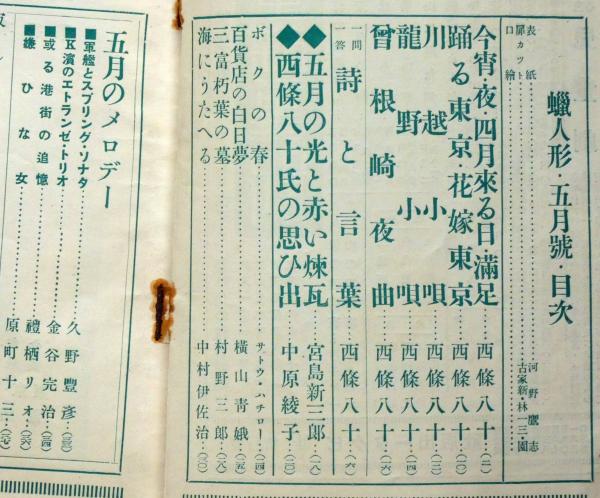 蠟人形・五月號・目次
表紙……河野鷹志
扉カット……古家新・林一三・園
口繪
今宵・夜・四月來る日・滿足……西條八十…(二)
踊る東京・花嫁東京……西條八十…(一〇)
川越小唄……西條八十…(一三)
龍野小唄……西條八十…(一四)
曾根崎夜曲……西條八十…(一六)
一問一答 詩と言葉……西條八十…(六)
◆五月の光と赤い煉瓦……宮島新三郎…(一八)
◆西條八十氏の思ひ出……中原綾子…(二〇)
ボクの春……サトウ・ハチロー…(四)
百貨店の白日夢……横山青娥…(五)
三富朽葉の墓……村野三郎…(一九)
海にうたへる……中村伊佐治…(三〇)
五月のメロデー
■軍艦とスプリング・ソナタ……久野豐彦…(三三)
■K濱のエトランゼ・トリオ……金谷完治…(三四)
■或る港街の追憶……禮栖リオ…(三六)
■嫌ひな女……原町十三…(三七)